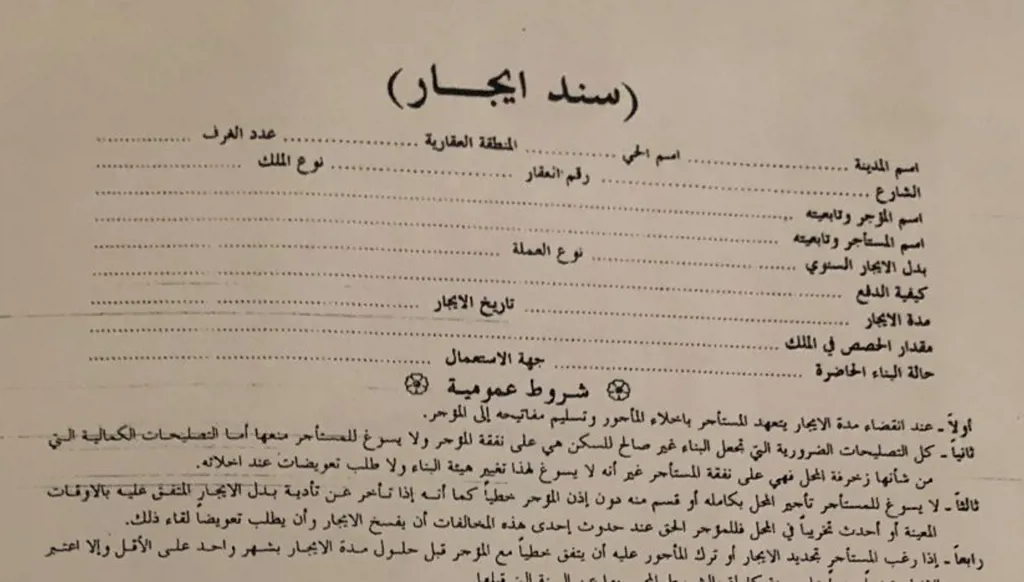 (سند ايجـــار)
اسم المدينة .................... اسم الحي .................... المنطقة العقارية .................... عدد الغرف ....................
الشارع .................... رقم العقار .................... نوع الملك ....................
اسم المؤجر وتابعيته ....................
اسم المستأجر وتابعيته ....................
بدل الايجار السنوي .................... نوع العملة ....................
كيفية الدفع ....................
مدة الايجار .................... تاريخ الايجار ....................
مقدار الحصص في الملك ....................
حالة البناء الحاضرة .................... جهة الاستعمال ....................
شروط عمومية
أولاً ـ عند انقضاء مدة الايجار يتعهد المستأجر باخلاء المأجور وتسليم مفاتيحه إلى المؤجر.
ثانياً ـ كل التصليحات الضرورية التي تجعل البناء غير صالح للسكن هي على نفقة المؤجر ولا يسوغ للمستأجر منعها أما التصليحات الكمالية التي
من شأنها زخرفة المحل فهي على نفقة المستأجر غير أنه لا يسوغ لهذا تغيير هيئة البناء ولا طلب تعويضات عند اخلائه.
ثالثاً ـ لا يسوغ للمستأجر تأجير المحل بكامله أو قسم منه دون إذن المؤجر خطياً كما أنه إذا تأخر عن تأدية بدل الايجار المتفق عليه بالاوقات
المعينة أو أحدث تخريباً في المحل فللمؤجر الحق عند حدوث إحدى هذه المخالفات أن يفسخ الايجار وأن يطلب تعويضاً لقاء ذلك.
رابعاً ـ إذا رغب المستأجر تجديد الايجار أو ترك المأجور عليه أن يتفق خطياً مع المؤجر قبل حلول مدة الايجار بشهر واحد على الأقل وإلا اعتبر